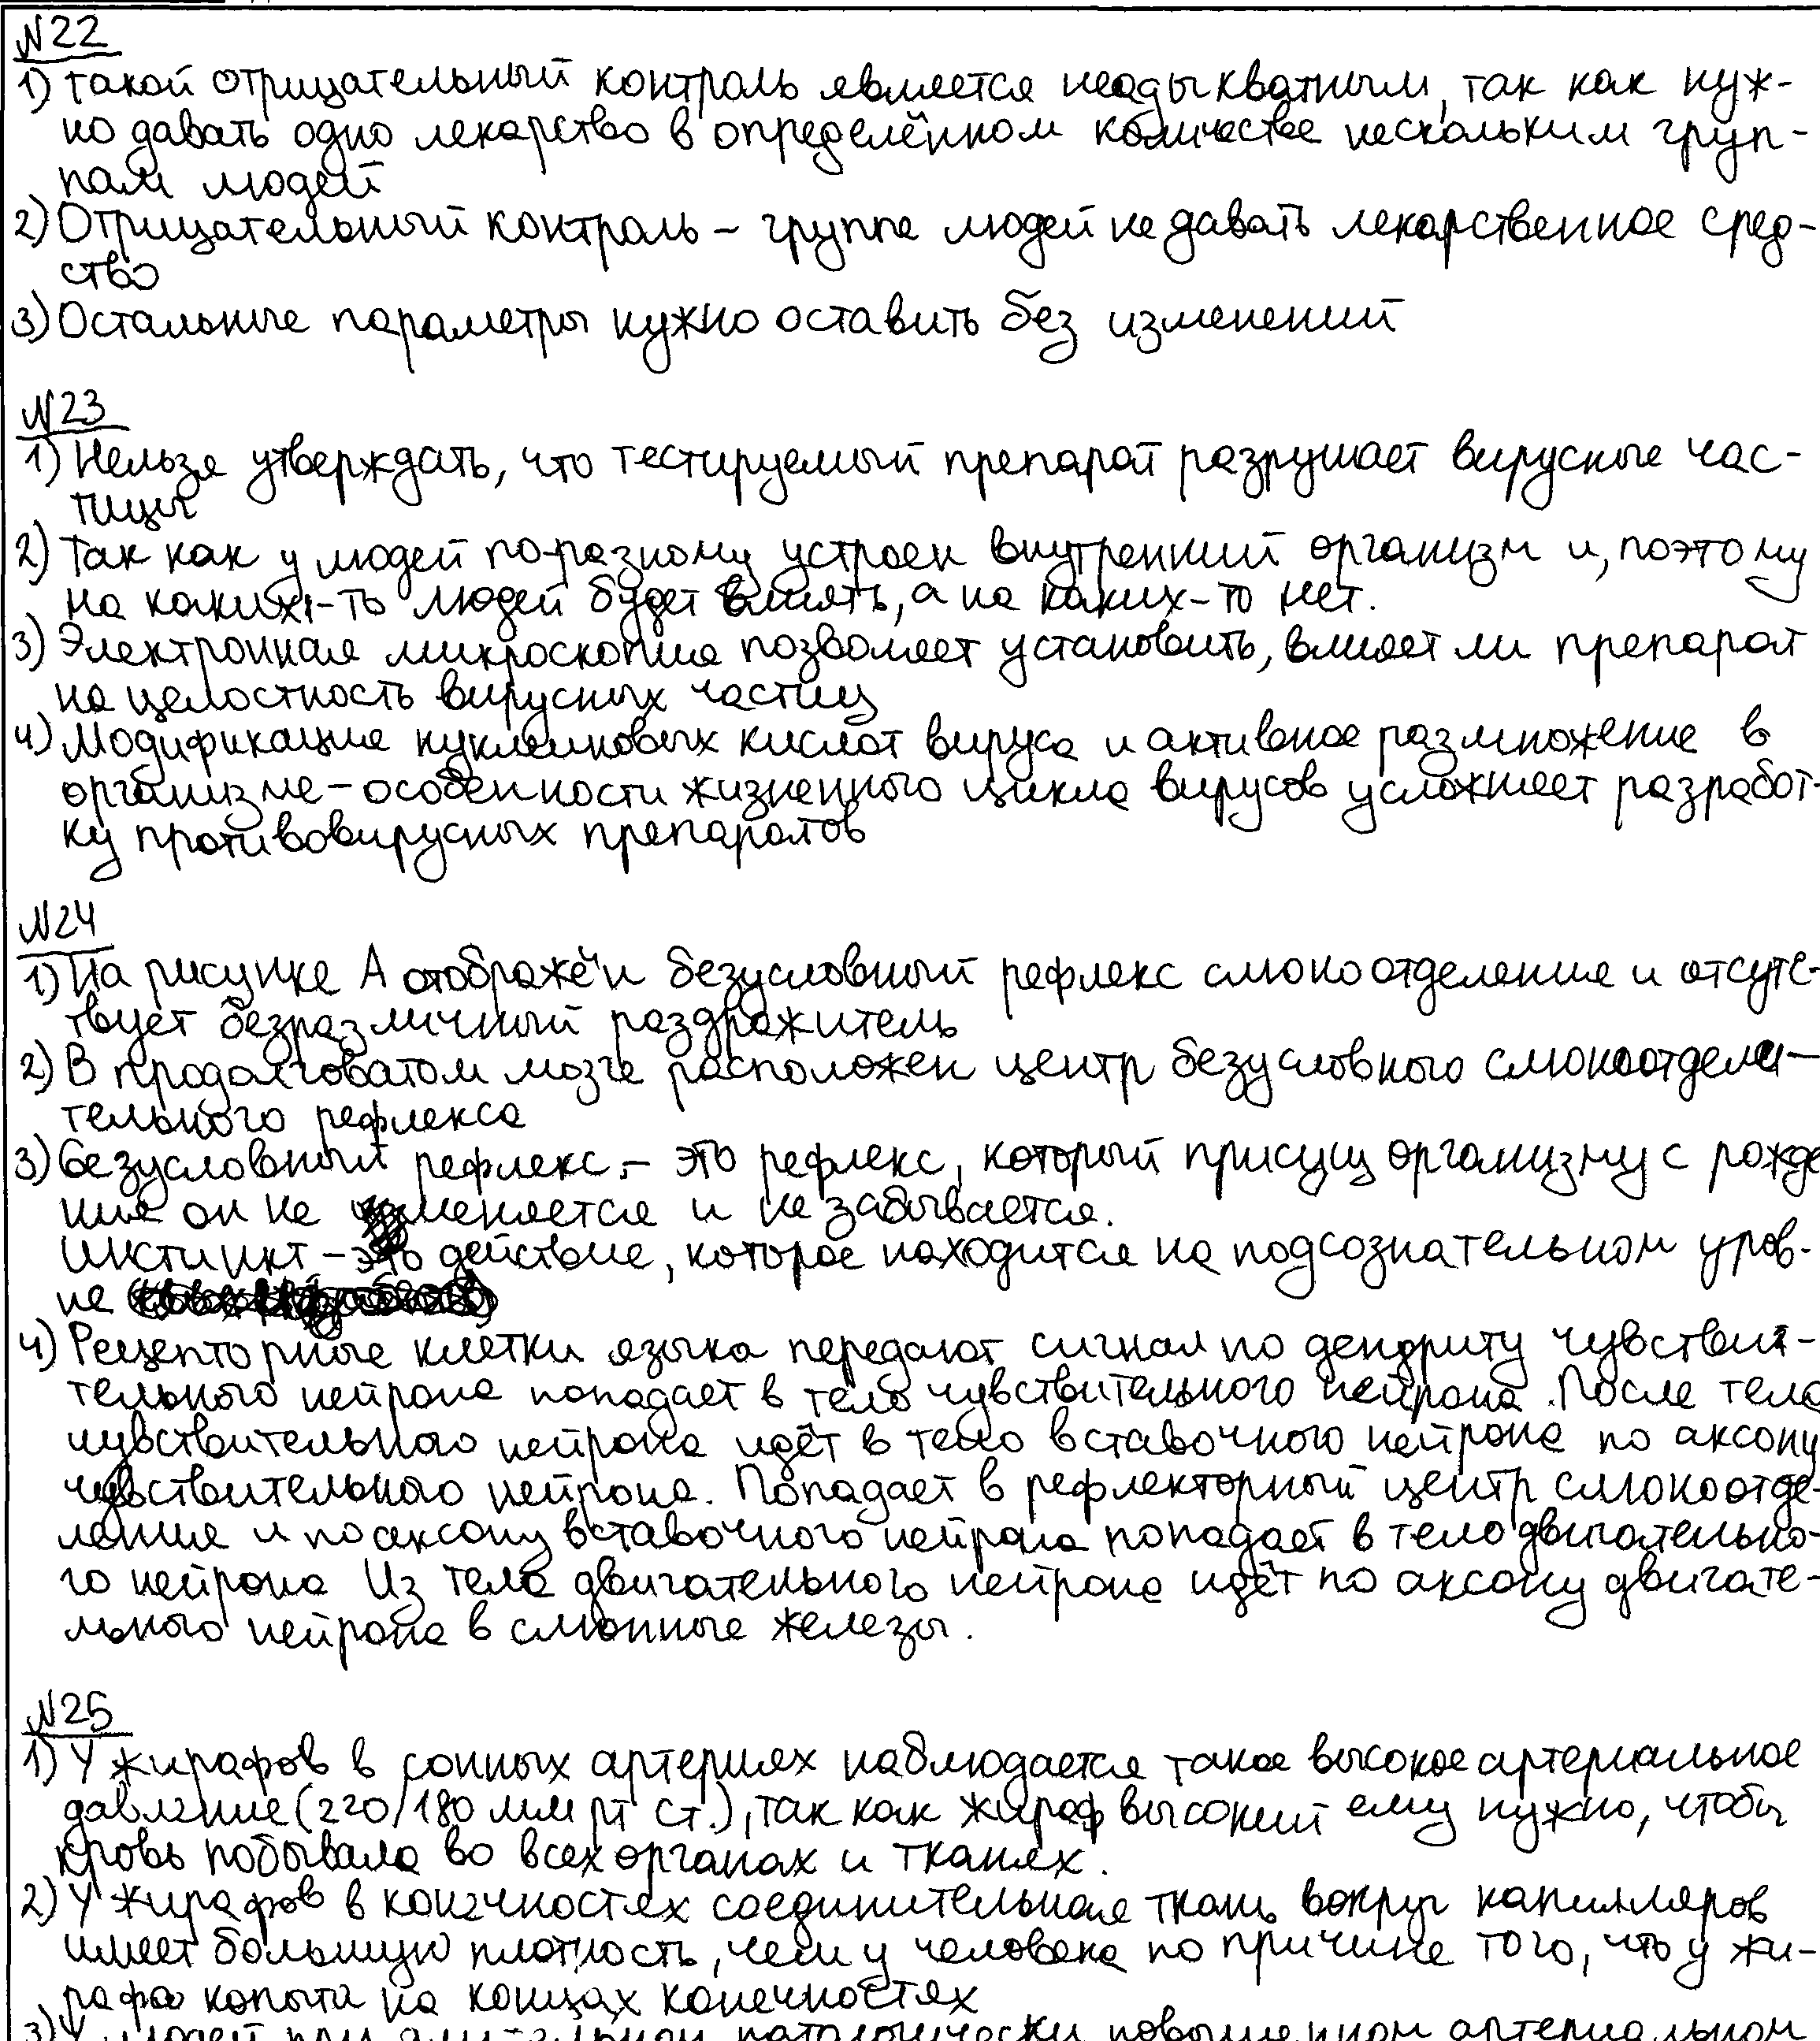 №22
1) такой отрицательный контроль является неадыкватным, так как нуж-
но давать одно лекарство в определённом количестве нескольким груп-
пам людей
2) Отрицательный контроль – группе людей не давать лекарственное сред-
ство
3) Остальные параметры нужно оставить без изменений
№23
1) Нельзя утверждать, что тестируемый препарат разрушает вирусные час-
тицы
2) Так как у людей по-разному устроен внутренний организм и, поэтому
на каких-то людей будет влиять, а на каких-то нет.
3) Электронная микроскопия позволяет установить, влияет ли препарат
на целостность вирусных частиц
4) Модификация нуклеиновых кислот вируса и активное размножение в
организме – особенности жизненного цикла вирусов усложняет разработ-
ку противовирусных препаратов
№24
1) На рисунке А отображён безусловный рефлекс слюноотделения и отсутс-
твует безразличный раздражитель
2) В продолговатом мозге расположен центр безусловного слюноотдели-
тельного рефлекса
3) безусловный рефлекс – это рефлекс, который присущ организму с рожде
ния он не меняется и не забывается.
Инстинкт – это действие, которое находится на подсознательном уров-
не
4) Рецепторные клетки языка передают сигнал по дендриту чувстви-
тельного нейрона попадает в тело чувствительного нейрона. После тела
чувствительного нейрона идёт в тело вставочного нейрона по аксону
чувствительного нейрона. Попадает в рефлекторный центр слюноотде-
ления и по аксону вставочного нейрона попадает в тело двигательно-
го нейрона Из тела двигательного нейрона идёт по аксону двигате-
льного нейрона в слюнные железы.
№25
1) У жирафов в сонных артериях наблюдается такое высокое артериальное
давление (220/180 мм рт ст.), так как жираф высокий ему нужно, чтобы
кровь побывала во всех органах и тканях.
2) У жирафов в конечностях соединительная ткань вокруг капилляров
имеет большую плотность, чем у человека по причине того, что у жи-
рафа копыта на концах конечностях
3) У людей при длительном патологически повышенном артериальном